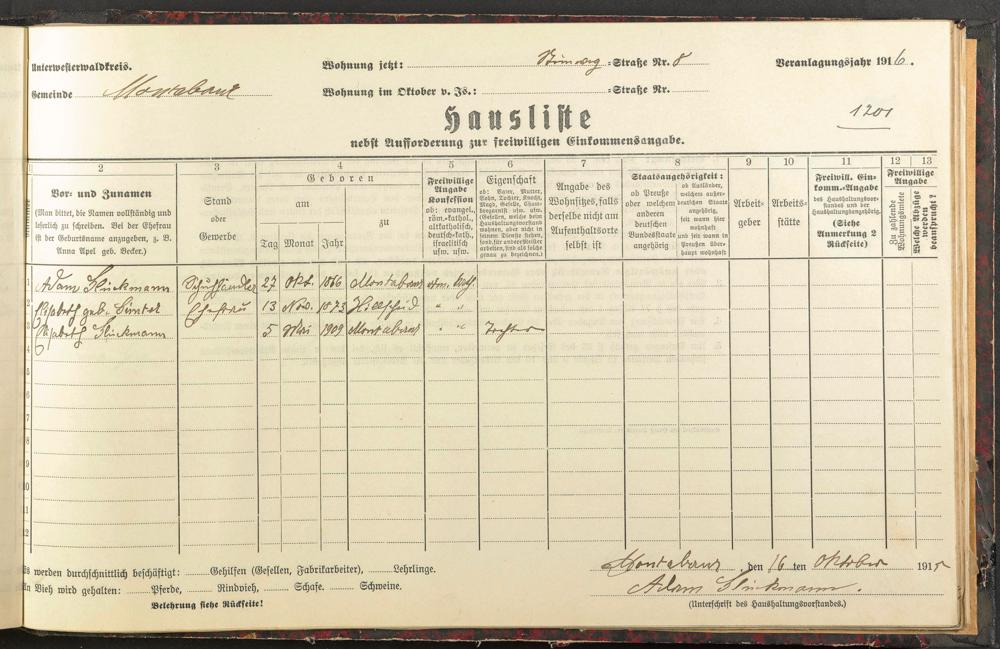 Unterwesterwaldkreis.
Wohnung jetzt: Steinweg =Straße Nr. 8
Veranlagungsjahr 1916.
Gemeinde Montabaur
Wohnung im Oktober v. Js.: =Straße Nr.
1201
Hausliste
nebst Aufforderung zur freiwilligen Einkommensangabe.
2 3 4 5 6 7 8 9 10 11 12 13
Vor- und Zunamen
(Man bittet, die Namen vollständig und
leserlich zu schreiben. Bei der Ehefrau
ist der Geburtsname anzugeben, z. B.
Anna Apel geb. Becker.)
Stand
oder
Gewerbe
Geboren
am
zu
Tag Monat Jahr
Freiwillige
Angabe
Konfession
ob: evangel.,
röm.-kathol.,
altkatholisch,
deutsch-kath.,
israelitisch
usw. usw.
Eigenschaft
ob: Vater, Mutter,
Sohn, Tochter, Knecht,
Magd, Geselle,
Angabe des
Wohnsitzes, falls
derselbe nicht am
Aufenthaltsorte
selbst ist
Staatsangehörigkeit:
ob Preuße
oder welchem
anderen
deutschen
Bundesstaate
angehörig
ob Ausländer,
welchem außer-
deutschen Staate
angehörig,
seit wann hier
wohnhaft
und seit wann in
Preußen über-
haupt wohnhaft
Arbeit-
geber
Arbeits-
stätte
Freiwill. Ein-
komm.-Angabe
des Haushaltungsvor-
standes und der
Haushaltungsangehörig.
(Siehe
Anmerkung 2
Rückseite)
Freiwillige
Angabe
Zu zahlende
Wohnungsmiete
Welche Abzüge
werden
beansprucht?
1 Adam Glückmann Schuhhändler 27 Okt. 1866 Montabaur röm. kath.
2 Elisabeth geb. Ehefrau 13 Nov. 1873 Hillscheid " "
3 Elisabeth Glückmann 5 Mai 1909 Montabaur " " Tochter
4
5
6
7
8
9
10
11
12
Es werden durchschnittlich beschäftigt: Gehilfen (Gesellen, Fabrikarbeiter), Lehrlinge.
Montabaur, den 16 ten Oktober 1915
An Vieh wird gehalten: Pferde, Rindvieh, Schafe. Schweine.
Adam Glückmann.
Belehrung siehe Rückseite!
(Unterschrift des Haushaltungsvorstandes.)